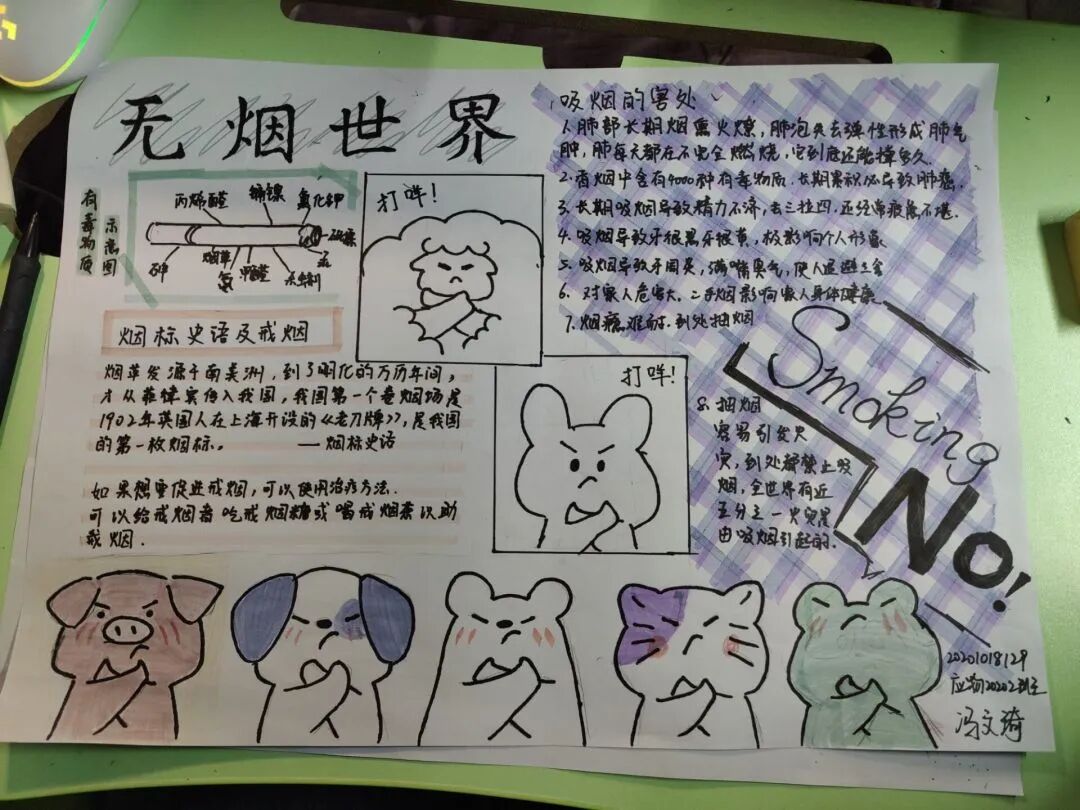 无烟世界
有毒物质
示意图
丙烯醛
镉镍
氰化钾
砷
烟草
氨
甲醛
杀虫剂
打咩!
烟标史语及戒烟
烟草发源于南美洲,到了明化的万历年间,
才从菲律宾传入我国,我国第一个卷烟场是
1902年英国人在上海开设的《老刀牌》,是我国
的第一枚烟标。 ——烟标史语
如果想要促进戒烟,可以使用治疗方法.
可以给戒烟者吃戒烟糖或喝戒烟茶以助
戒烟.
打咩!
吸烟的害处
1.肺部长期烟熏火燎,肺泡失去弹性形成肺气
肿,肺每天都在不完全燃烧,它到底还能撑多久.
2.香烟中含有4000种有毒物质.长期累积必导致肺癌.
3.长期吸烟导致精力不济,丢三拉四.还经常疲惫不堪.
4.吸烟导致牙很黑牙很黄,极影响个人形象
5.吸烟导致牙周炎,满嘴臭气,使人退避三舍
6.对家人危害大.二手烟影响家人身体健康
7.烟瘾难耐.到处抽烟
8.抽烟
容易引发火
灾,到处都禁止吸
烟,全世界有近
五分之一火灾是
由吸烟引起的.
Smoking
No!
20201018129
应物20202班
冯文琦